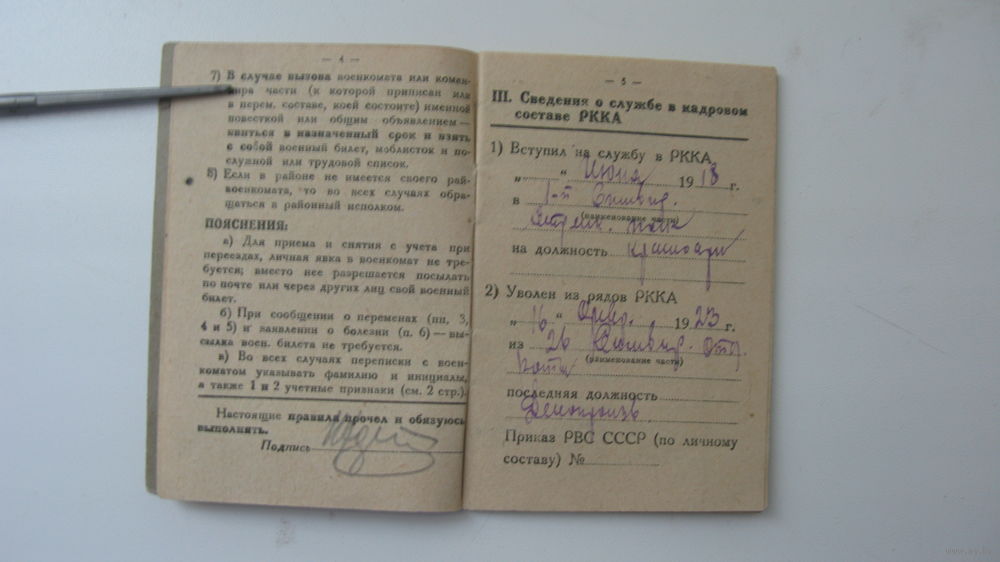 — 4 —
7) В случае вызова военкомата или коман-
дира части (к которой приписан или
в перем. составе, коей состоите) именной
повесткой или общим объявлением —
явиться в назначенный срок и взять
с собой военный билет, моблисток и по-
служной или трудовой список.
8) Если в районе не имеется своего рай-
военкомата, то во всех случаях обра-
щаться в районный исполком.
ПОЯСНЕНИЯ:
а) Для приема и снятия с учета при
переездах, личная явка в военкомат не тре-
буется; вместо нее разрешается посылать
по почте или через других лиц свой военный
билет.
б) При сообщении о переменах (пп. 3,
4 и 5) и заявлении о болезни (п. 6) — вы-
сылка воен. билета не требуется.
в) Во всех случаях переписки с воен-
коматом указывать фамилию и инициалы,
а также 1 и 2 учетные признаки (см. 2 стр.).
Настоящие правила прочел и обязуюсь
выполнять.
Подпись
— 5 —
III. Сведения о службе в кадровом
составе РККА
1) Вступил на службу в РККА
„ “ Июня 1918 г.
в 1-й
(наименование части)
полк
на должность
2) Уволен из рядов РККА
„16“ 1923 г.
из 26
(наименование части)
последняя должность
Приказ РВС СССР (по личному
составу) №